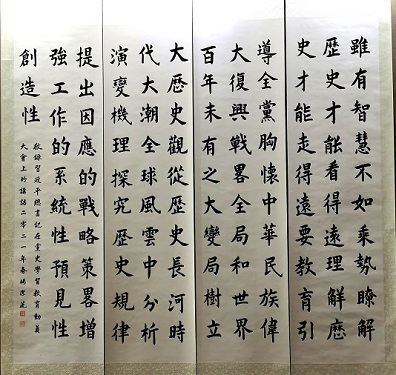 雖有智慧不如乘勢瞭解
歷史才能看得遠理解歷
史才能走得遠要教育引
導全黨胸懷中華民族偉
大復興戰畧全局和世界
百年未有之大變局樹立
大歷史觀從歷史長河時
代大潮全球風雲中分析
演變機理探究歷史規律
提出因應的戰略策畧增
強工作的系統性預見性
創造性
敬錄習近平總書記在黨史學習教育動員
大會上的講話二零二一年春楊